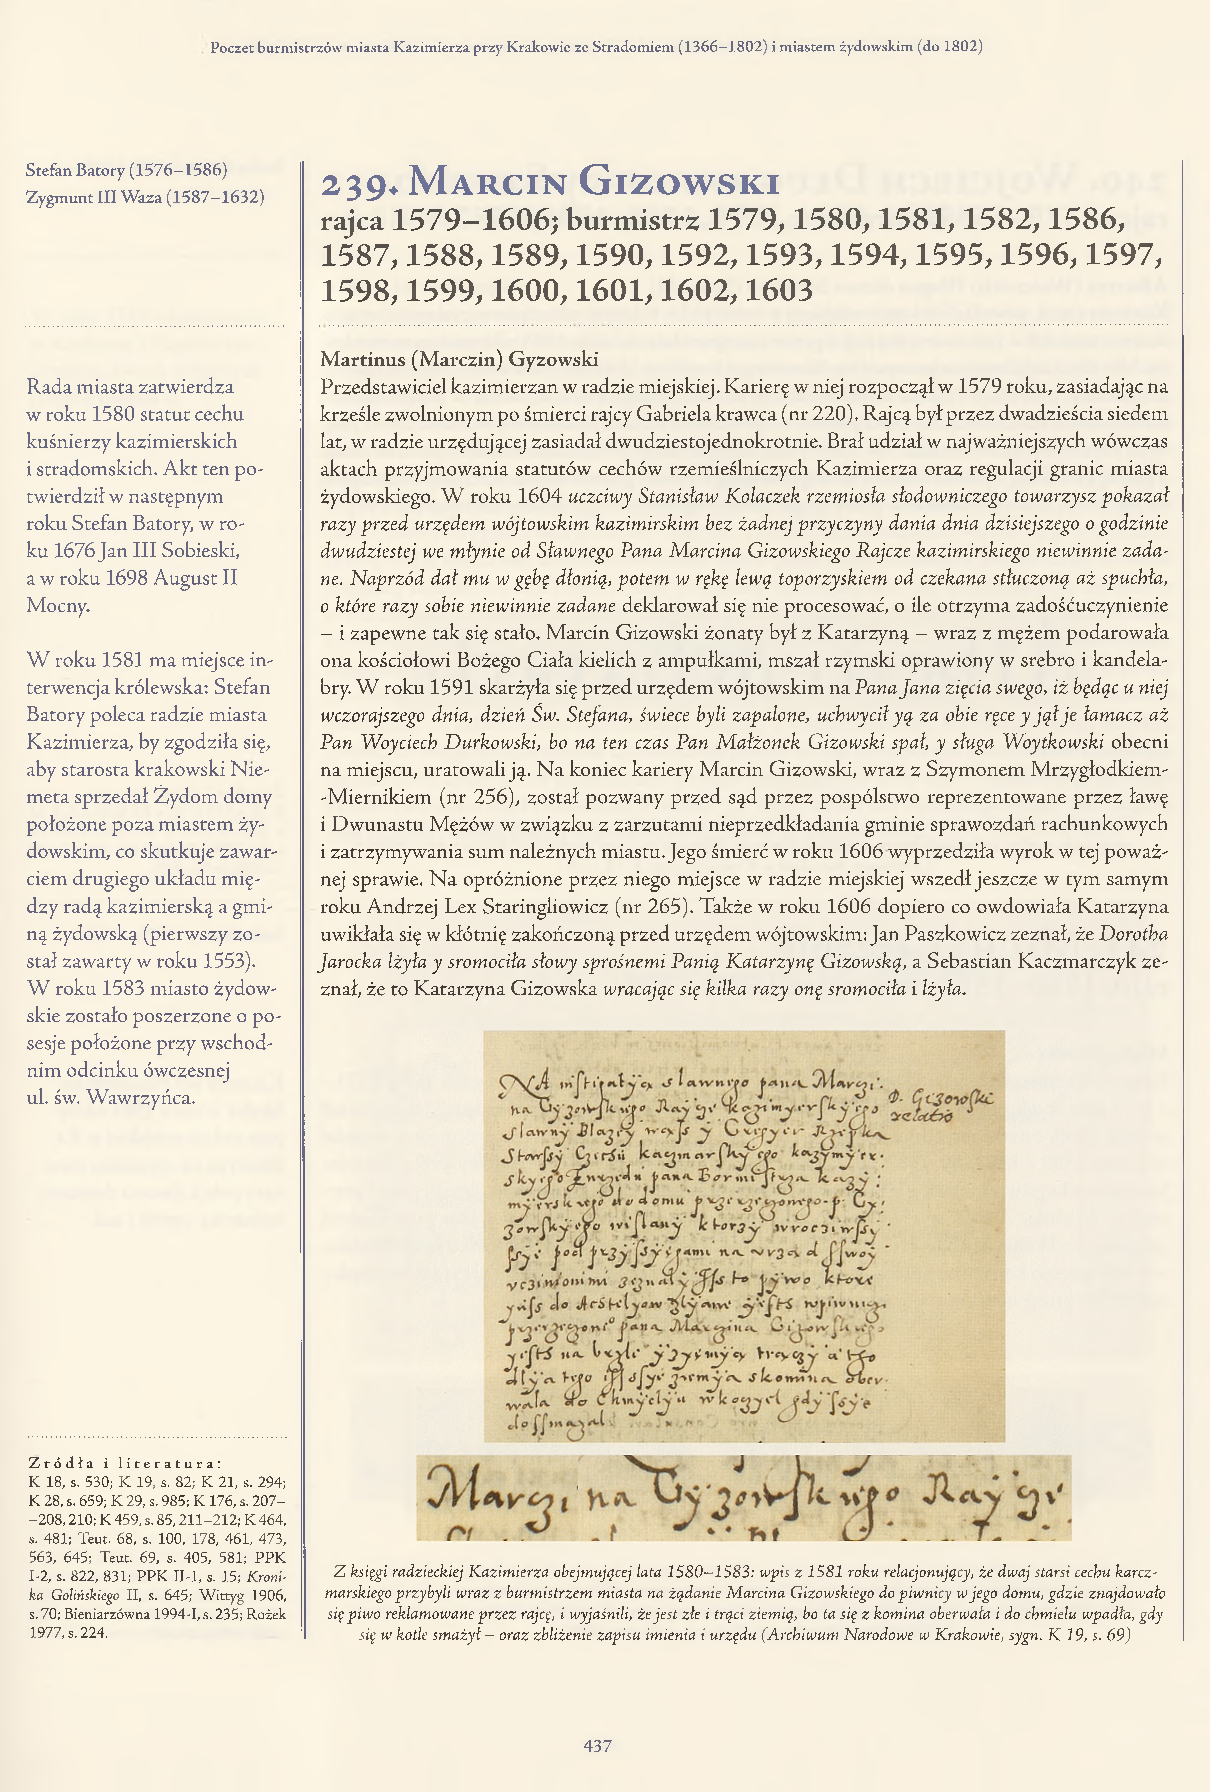 Poczet burmistrzów miasta Kazimierza przy Krakowie ze Stradomiem (1366–1802) i miastem żydowskim (do 1802)
Stefan Batory (1576–1586)
Zygmunt III Waza (1587–1632)
Rada miasta zatwierdza
w roku 1580 statut cechu
kuśnierzy kazimierskich
i stradomskich. Akt ten po-
twierdził w następnym
roku Stefan Batory, w ro-
ku 1676 Jan III Sobieski,
a w roku 1698 August II
Mocny.
W roku 1581 ma miejsce in-
terwencja królewska: Stefan
Batory poleca radzie miasta
Kazimierza, by zgodziła się,
aby starosta krakowski Nie-
meta sprzedał Żydom domy
położone poza miastem ży-
dowskim, co skutkuje zawar-
ciem drugiego układu mię-
dzy radą kazimierską a gmi-
ną żydowską (pierwszy zo-
stał zawarty w roku 1553).
W roku 1583 miasto żydow-
skie zostało poszerzone o po-
sesje położone przy wschod-
nim odcinku ówczesnej
ul. św. Wawrzyńca.
Źródła i literatura:
K 18, s. 530; K 19, s. 82; K 21, s. 294;
K 28, s. 659; K 29, s. 985; K 176, s. 207–
–208, 210; K 459, s. 85, 211–212; K 464,
s. 481; Teut. 68, s. 100, 178, 461, 473,
563, 645; Teut. 69, s. 405, 581; PPK
I-2, s. 822, 831; PPK II-1, s. 15; Kroni-
ka Golińskiego II, s. 645; Wittyg 1906,
s. 70; Bieniarzówna 1994-I, s. 235; Rożek
1977, s. 224.
239. Marcin Gizowski
rajca 1579–1606; burmistrz 1579, 1580, 1581, 1582, 1586,
1587, 1588, 1589, 1590, 1592, 1593, 1594, 1595, 1596, 1597,
1598, 1599, 1600, 1601, 1602, 1603
Martinus (Marczin) Gyzowski
Przedstawiciel kazimierzan w radzie miejskiej. Karierę w niej rozpoczął w 1579 roku, zasiadając na
krześle zwolnionym po śmierci rajcy Gabriela krawca (nr 220). Rajcą był przez dwadzieścia siedem
lat, w radzie urzędującej zasiadał dwudziestojednokrotnie. Brał udział w najważniejszych wówczas
aktach przyjmowania statutów cechów rzemieślniczych Kazimierza oraz regulacji granic miasta
żydowskiego. W roku 1604 uczciwy Stanisław Kolaczek rzemiosła słodowniczego towarzysz pokazał
razy przed urzędem wójtowskim kazimirskim bez żadnej przyczyny dania dnia dzisiejszego o godzinie
dwudziestej we młynie od Sławnego Pana Marcina Gizowskiego Rajcze kazimirskiego niewinnie zada-
ne. Naprzód dał mu w gębę dłonią, potem w rękę lewą toporzyskiem od czekana stłuczoną aż spuchła,
o które razy sobie niewinnie zadane deklarował się nie procesować, o ile otrzyma zadośćuczynienie
– i zapewne tak się stało. Marcin Gizowski żonaty był z Katarzyną – wraz z mężem podarowała
ona kościołowi Bożego Ciała kielich z ampułkami, mszał rzymski oprawiony w srebro i kandela-
bry. W roku 1591 skarżyła się przed urzędem wójtowskim na Pana Jana zięcia swego, iż będąc u niej
wczorajszego dnia, dzień Św. Stefana, świece byli zapalone, uchwycił yą za obie ręce y jął je łamacz aż
Pan Woyciech Durkowski, bo na ten czas Pan Małżonek Gizowski spał, y sługa Woytkowski obecni
na miejscu, uratowali ją. Na koniec kariery Marcin Gizowski, wraz z Szymonem Mrzygłodkiem-
-Miernikiem (nr 256), został pozwany przed sąd przez pospólstwo reprezentowane przez ławę
i Dwunastu Mężów w związku z zarzutami nieprzedkładania gminie sprawozdań rachunkowych
i zatrzymywania sum należnych miastu. Jego śmierć w roku 1606 wyprzedziła wyrok w tej poważ-
nej sprawie. Na opróżnione przez niego miejsce w radzie miejskiej wszedł jeszcze w tym samym
roku Andrzej Lex Staringliowicz (nr 265). Także w roku 1606 dopiero co owdowiała Katarzyna
uwikłała się w kłótnię zakończoną przed urzędem wójtowskim: Jan Paszkowicz zeznał, że Dorotha
Jarocka lżyła y sromociła słowy sprośnemi Panią Katarzynę Gizowską, a Sebastian Kaczmarczyk ze-
znał, że to Katarzyna Gizowska wracając się kilka razy onę sromociła i lżyła.
Marczi na Gyzowskiego Raycze
Z księgi radzieckiej Kazimierza obejmującej lata 1580–1583: wpis z 1581 roku relacjonujący, że dwaj starsi cechu karcz-
marskiego przybyli wraz z burmistrzem miasta na żądanie Marcina Gizowskiego do piwnicy w jego domu, gdzie znajdowało
się piwo reklamowane przez rajcę, i wyjaśnili, że jest złe i trąci ziemią, bo ta się z komina oberwała i do chmielu wpadła, gdy
się w kotle smażył – oraz zbliżenie zapisu imienia i urzędu (Archiwum Narodowe w Krakowie, sygn. K 19, s. 69)
437